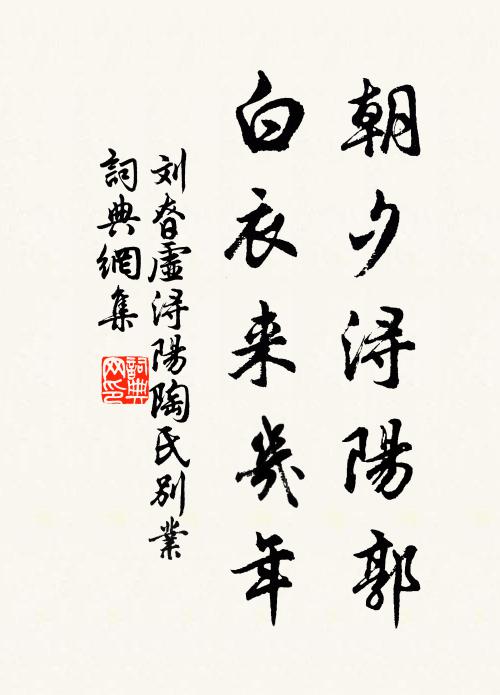 朝夕浔陽郭
白衣来幾年
刘眘虚浔陽陶氏别業
詞典網集
詞典网印